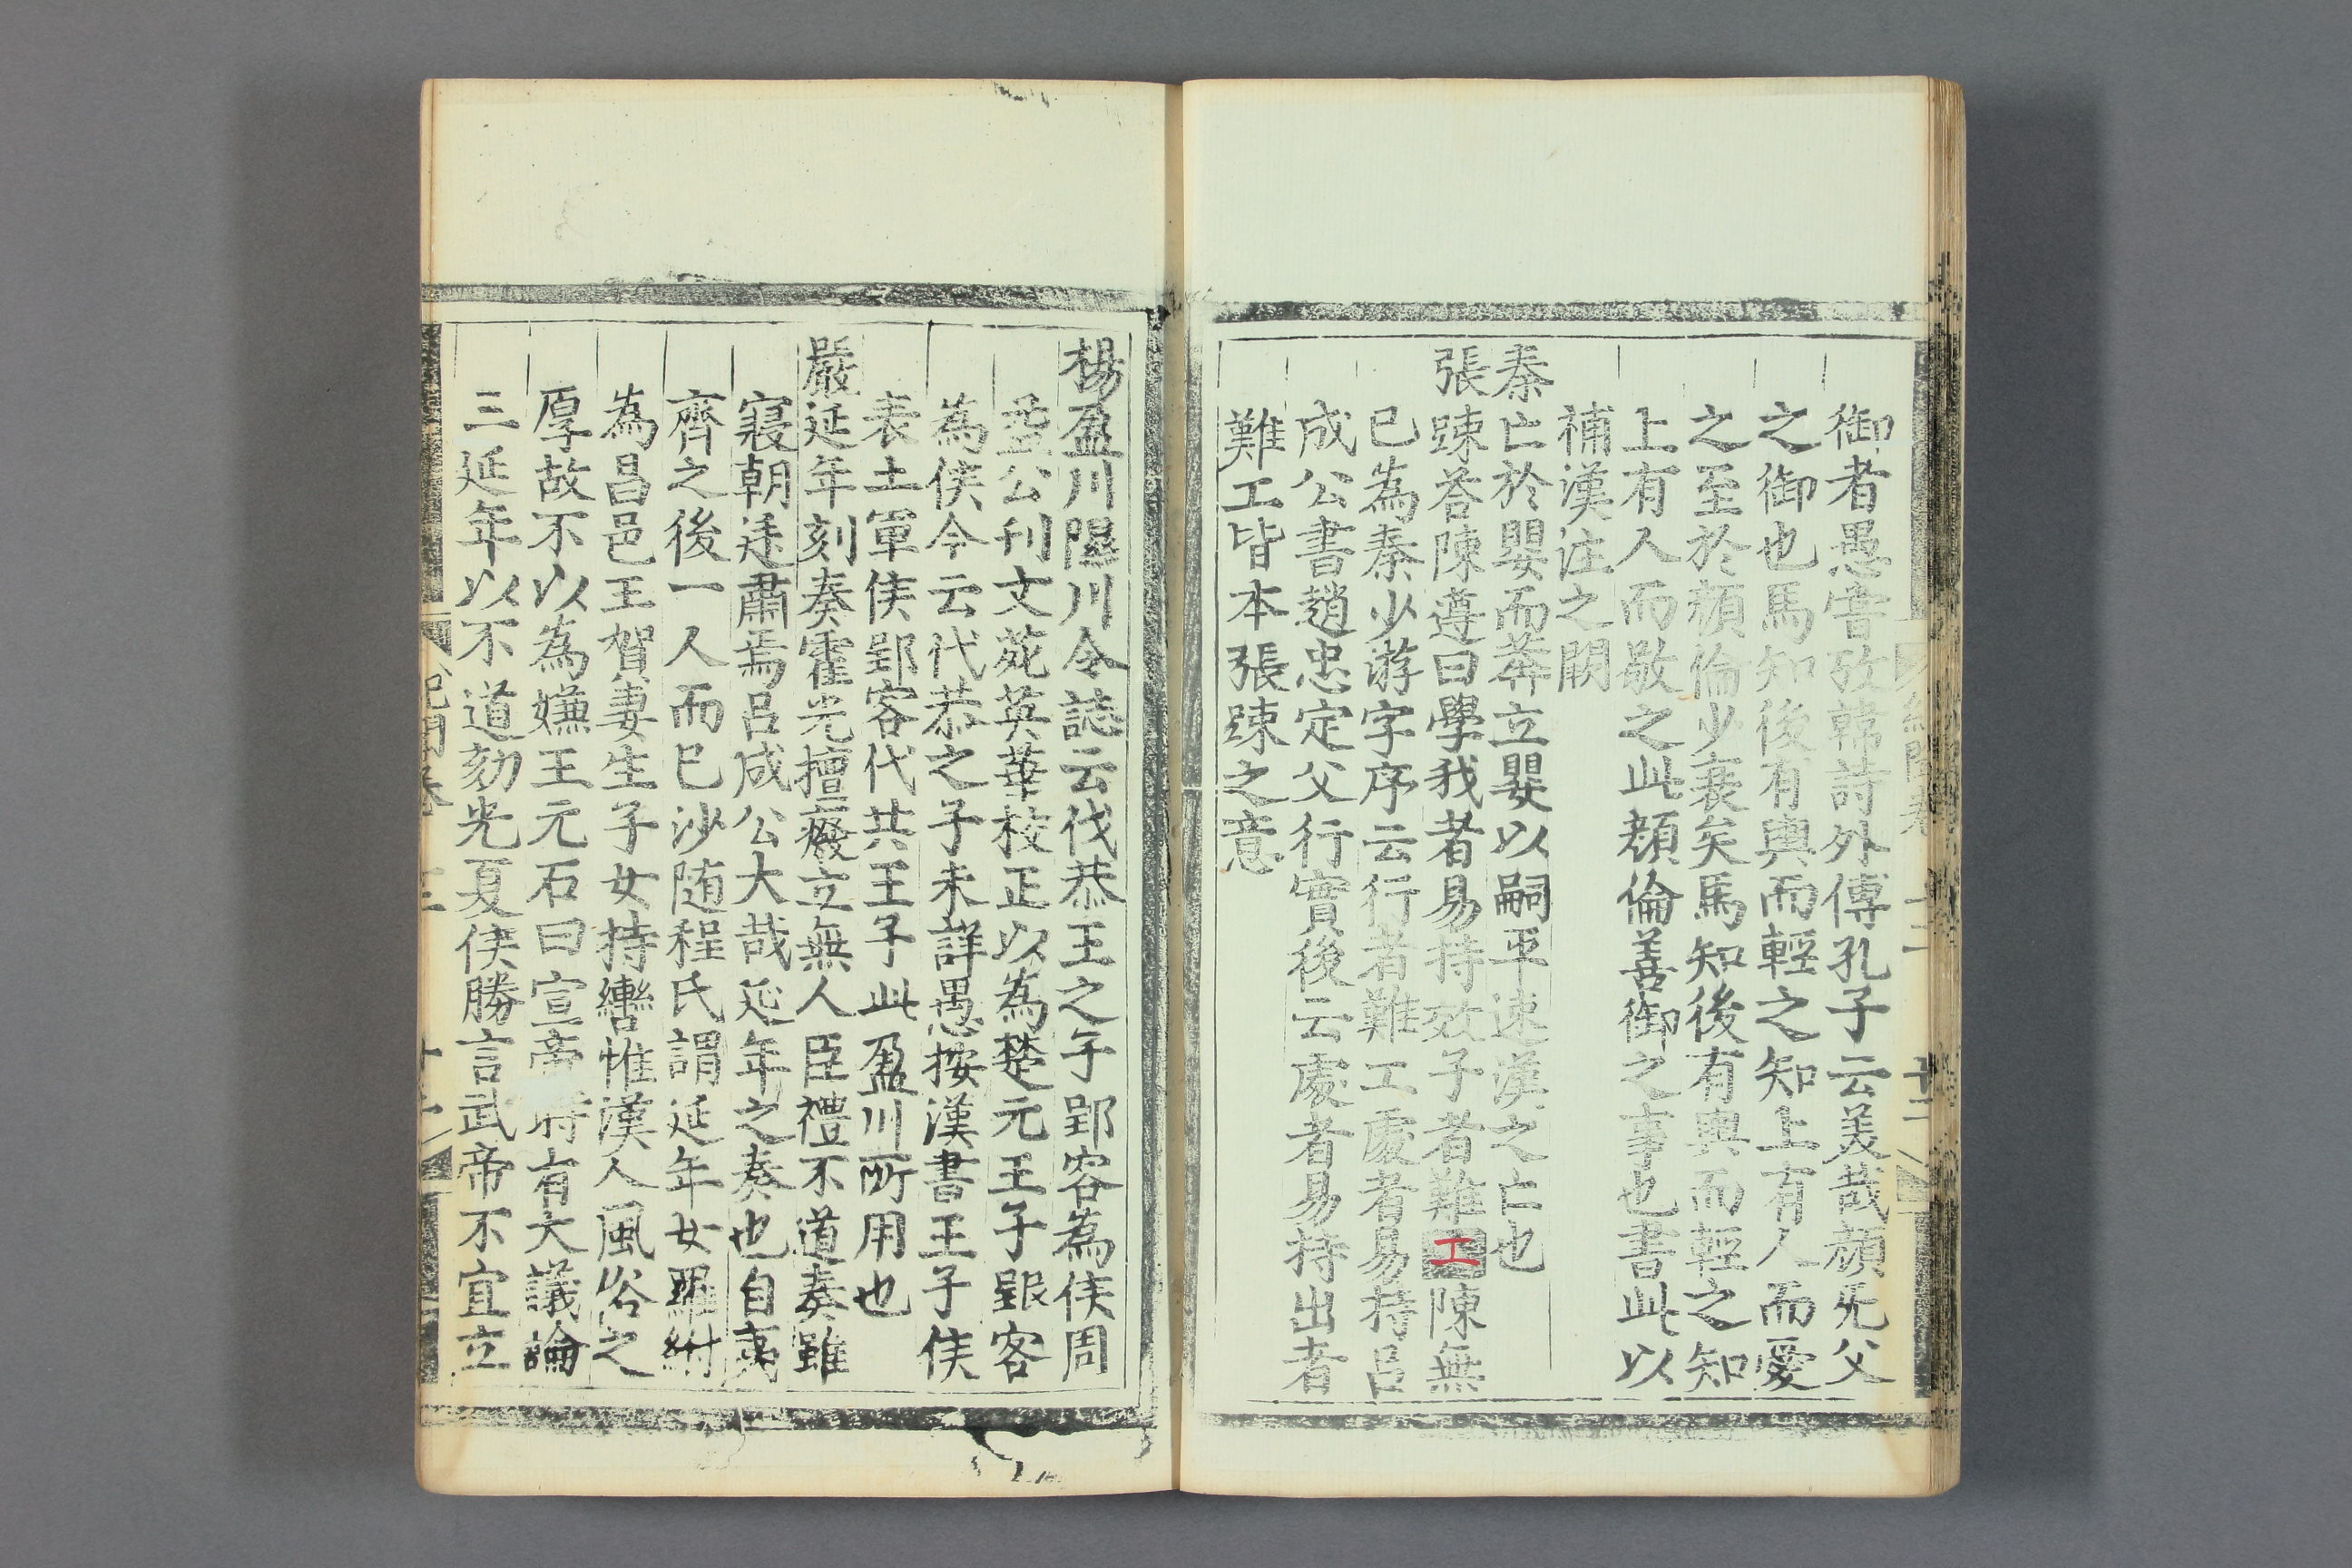 御者愚嘗攷韓詩外傅孔子云美哉顔旡父
之御也馬知後有輿而輕之知上有人而愛
之至於顔倫少衰矣馬知後有輿而輕之知
上有人而敬之此顔倫善御之事也書此以
補漢注之闕
秦亡於嬰而莽立嬰以嗣平速漢之亡也
張竦荅陳遵曰學我者易持效子者難工陳無
已為秦少游字序云行者難工處者易持呂
成公書趙忠定父行實後云處者易持出者
難工皆本張竦之意
楊盈川隰川令誌云伐恭王之子郢容為侯周
益公刊文苑英華校正以為楚元王子郢客
為侯今云代恭之子未詳愚按漢書王子侯
表土軍侯郢客代共王子此盈川所用也
嚴延年刻奏霍光擅癈立無人臣禮不道奏雖
寢朝廷肅焉呂成公大哉延年之奏也自夷
齊之後一人而已沙随程氏謂延年女羅紨
為昌邑王賀妻生子女持轡惟漢人風俗之
厚故不以為嫌王元石曰宣帝時有大議論
三延年以不道劾光夏侯勝言武帝不宜立